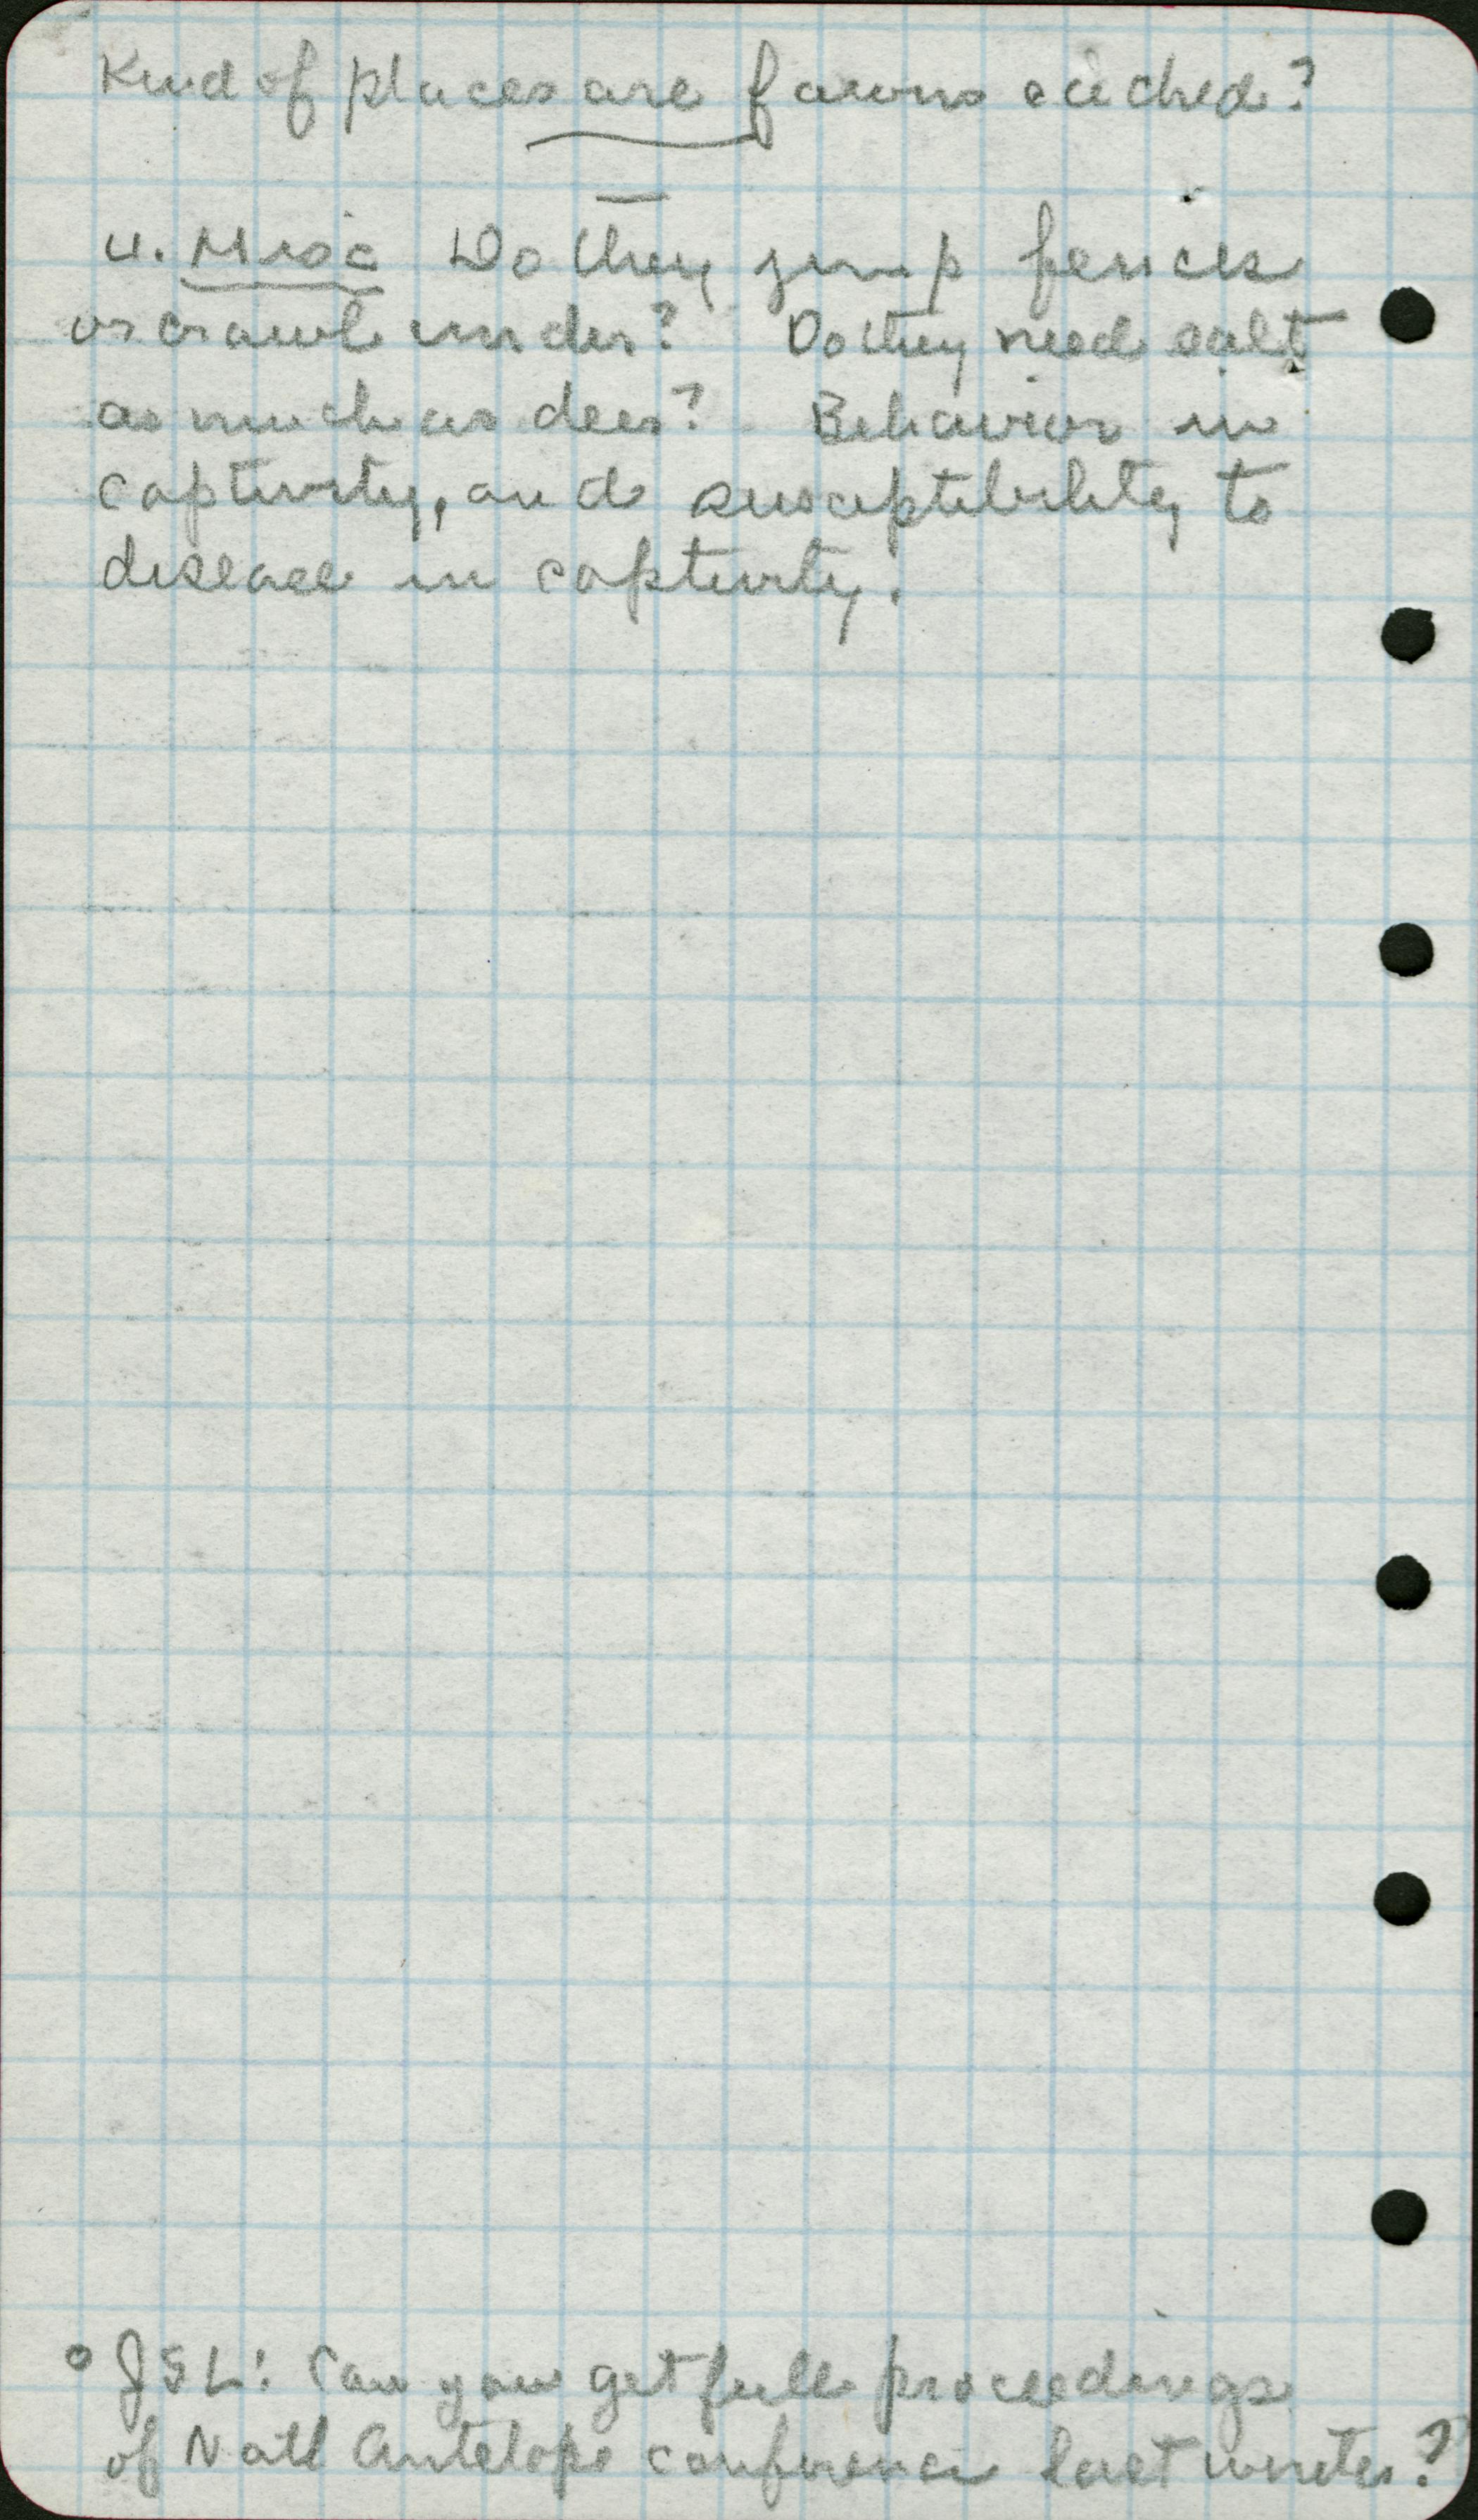 Kind of places are fawns cached?
u. Misc Do they jump fences
or crawl under? Do they need salt
as much as deer? Behavior in
captivity, and susceptibility to
disease in captivity.
° JSL: Can you get full proceedings
of Natl Antelope conference last winter?